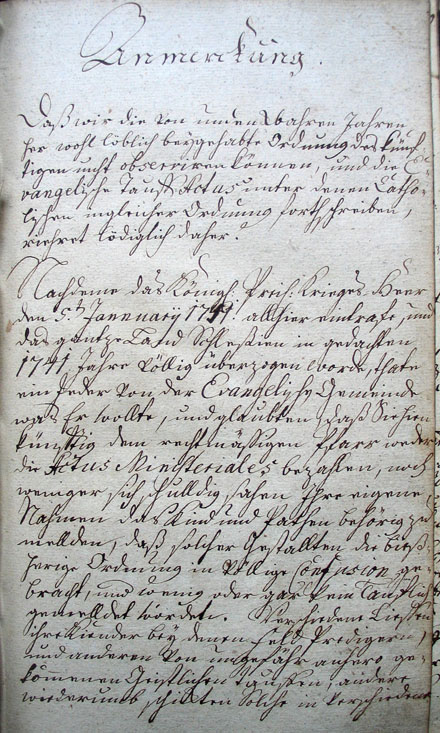 Anmerckung.
Daß wir die von undenckbahren Jahren
her wohl löblich beygehabte Ordnung des künf-
tigen nicht observiren können, und die E-
vangelische Tauff Actus unter denen Catho-
lischen in gleicher Ordnung forth schreiben,
riehret lödiglich daher.
Nachdeme das Königl: Preiß: Krieges Heer
den 5.t Jannuary 1741 allhier eintrafe, und
das gantze Land Schleßien in gedachten
1741 Jahre völlig überzogen worde, thate
ein Jeder von der Evangelische Gemeinde
was Er wollte, und glaubten daß Sie hin
künfftig dem rechtmäßigen Pfarr weder
die Actus Ministeriales bezahlen, noch
weniger sich schulldig sahen Ihre eigene
Nahmen das Kind und Pathen behörig zu
mellden, daß solcher Gestallten die bieß-
herige Ordnung in völlige Confusion ge-
bracht, und wenig oder gar kein Tauffling
gemelldet worden. Verschiedene Liessen
ihre Kiender bey denen Feld Predigern
und anderen von ungefähr anhero ge-
komenen Geistlichen tauffen, andere
wiederumb schikten Solche in verschiedene